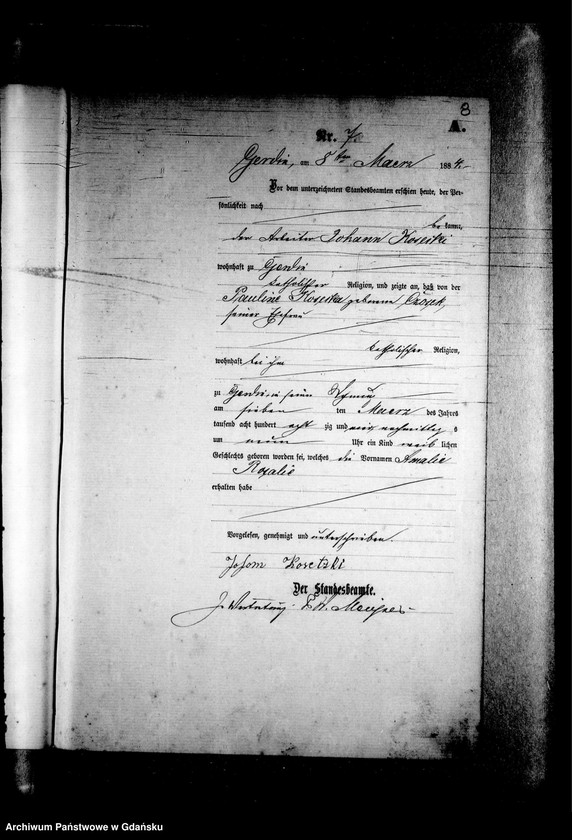 8
A.
Nr. 7.
Gerdin, am 8ten Maerz 1884.
Vor dem unterzeichneten Standesbeamten erschien heute, der Per-
sönlichkeit nach
be kannt,
der Arbeiter Johann Koseski
wohnhaft zu Gerdin
katholischer Religion, und zeigte an, daß von der
Pauline Koseska geborenen
seiner Ehefrau
katholischer Religion,
wohnhaft bei ihm
zu Gerdin in seiner
am sieben ten Maerz des Jahres
tausend acht hundert acht zig und vier nachmittag s
um neun Uhr ein Kind weib lichen
Geschlechts geboren worden sei, welches die Vornamen Amalie
Rosalie
erhalten habe
Vorgelesen, genehmigt und unterschrieben.
Johann
Der Standesbeamte.
In Vertretung
Archiwum Państwowe w Gdańsku